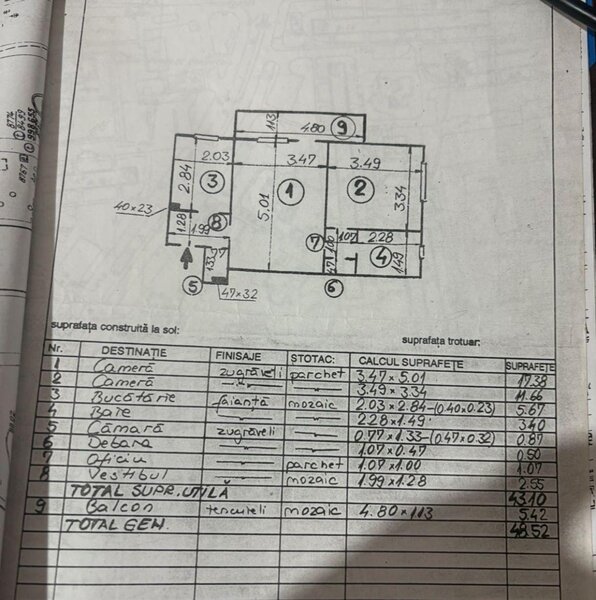 113
4.80
9
2.03
3.47
3.49
2.84
3
1
2
3.34
5.01
40×23
1.28
8
1.99
7
1.00
1.07
2.28
4
1.49
47
77
1.33
5
47×32
6
suprafața construită la sol:
suprafața trotuar:
Nr. DESTINAȚIE FINISAJE STOTAC: CALCUL SUPRAFEȚE SUPRAFEȚE
1 Cameră zugrăveli parchet 3.47×5.01 17.38
2 Cameră 3.49×3.34 11.66
3 Bucătărie faianță mozaic 2.03×2.84-(0.40×0.23) 5.67
4 Baie 2.28×1.49 3.40
5 Cămară zugrăveli 0.77×1.33-(0.47×0.32) 0.87
6 Debara 1.07×0.47 0.50
7 Oficiu parchet 1.07×1.00 1.07
8 Vestibul mozaic 1.99×1.28 2.55
TOTAL SUPR. UTILĂ 43.10
9 Balcon tencuieli mozaic 4.80×113 5.42
TOTAL GEN. 48.52